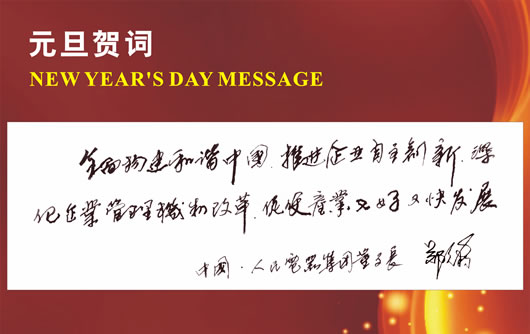 元旦贺词
NEW YEAR'S DAY MESSAGE
全面构建和谐中國、推进企业自主创新、深
化企業管理機制改革、促使產業又好又快发展
中國·人民電器集团董事長 郑元豹